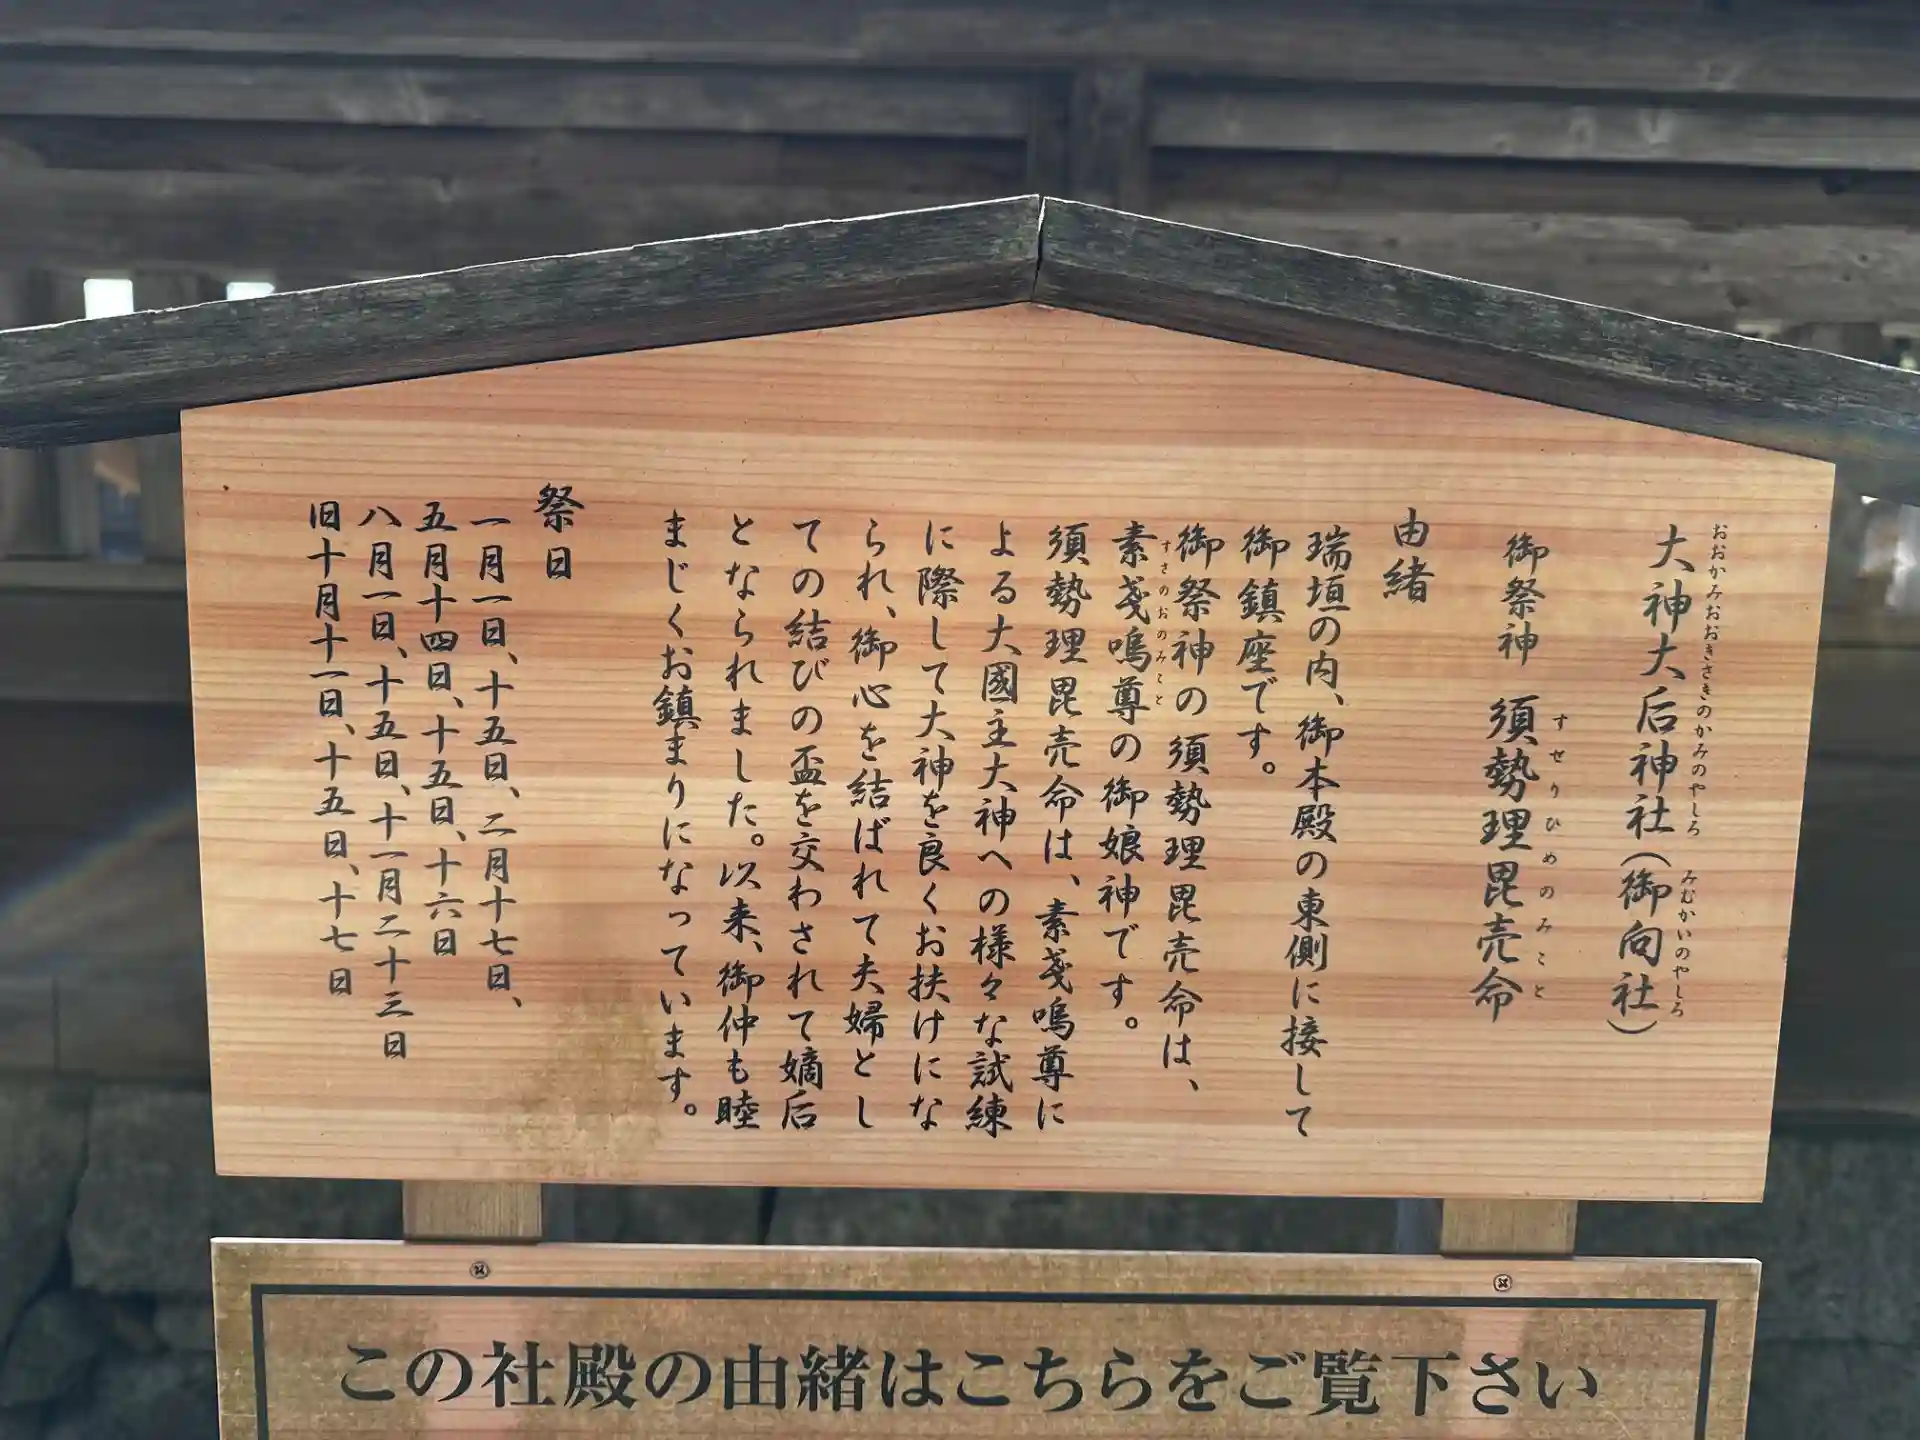 大神大后神社(御向社)
おおかみおおきさきのかみのやしろ みむかいのやしろ
御祭神 須勢理毘売命
すせりひめのみこと
由緒
瑞垣の内、御本殿の東側に接して
御鎮座です。
御祭神の須勢理毘売命は、
素戔嗚尊の御娘神です。
すさのおのみこと
須勢理毘売命は、素戔嗚尊に
よる大國主大神への様々な試練
に際して大神を良くお扶けにな
られ、御心を結ばれて夫婦とし
ての結びの盃を交わされて嫡后
となられました。以来、御仲も睦
まじくお鎮まりになっています。
祭日
一月一日、十五日、二月十七日、
五月十四日、十五日、十六日
八月一日、十五日、十一月二十三日
旧十月十一日、十五日、十七日
この社殿の由緒はこちらをご覧下さい